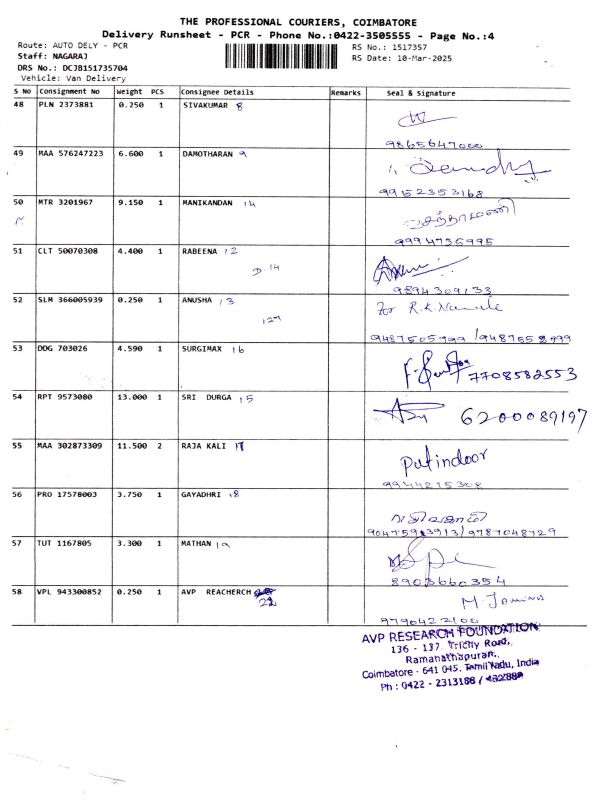 THE PROFESSIONAL COURIERS, COIMBATORE
Delivery Runsheet - PCR - Phone No.:0422-3505555 - Page No.:4
Route: AUTO DELY - PCR RS No.: 1517357
Staff: NAGARAJ RS Date: 10-Mar-2025
DRS No.: DCJB151735704
Vehicle: Van Delivery
S No Consignment No Weight PCS Consignee Details Remarks Seal & Signature
48 PLN 2373881 0.250 1 SIVAKUMAR 8
9865647000
49 MAA 576247223 6.600 1 DAMOTHARAN 9
99152353168
50 MTR 3201967 9.150 1 MANIKANDAN 14
9994736995
51 CLT 50070308 4.400 1 RABEENA 12
D.14
9894309133
52 SLM 366005939 0.250 1 ANUSHA 13 for R.K.
127
9487505999 /9487558999
53 DDG 703026 4.590 1 SURGIMAX 16
7708582553
54 RPT 9573080 13.000 1 SRI DURGA 15
6200089197
55 MAA 302873309 11.500 2 RAJA KALI 17
Putindoor
9944215308
56 PRO 17578003 3.750 1 GAYADHRI 18
/9787048729
57 TUT 1167805 3.300 1 MATHAN 19
8903660354
58 VPL 943300852 0.250 1 AVP REACHERCH
22
9790422100
AVP RESEARCH FOUNDATION
136 - 137, Trichy Road,
Ramanathapuram,
Coimbatore - 641 045. Tamil Nadu, India
Ph : 0422 - 2313188 /